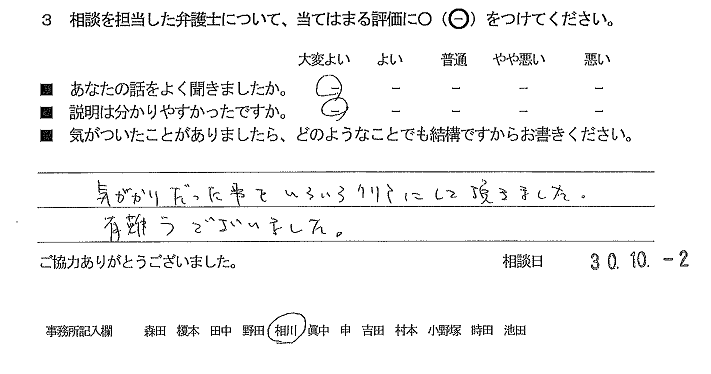 3 相談を担当した弁護士について、当てはまる評価に○(㊀)をつけてください。
大変よい よい 普通 やや悪い 悪い
■ あなたの話をよく聞きましたか。 - - - - -
■ 説明は分かりやすかったですか。 - - - - -
■ 気がついたことがありましたら、どのようなことでも結構ですからお書きください。
気がかりだった事をいろいろクリアにして頂きました。
有難うございました。
ご協力ありがとうございました。 相談日 30.10.-2
事務所記入欄 森田 榎本 田中 野田 相川 眞中 申 吉田 村本 小野塚 時田 池田